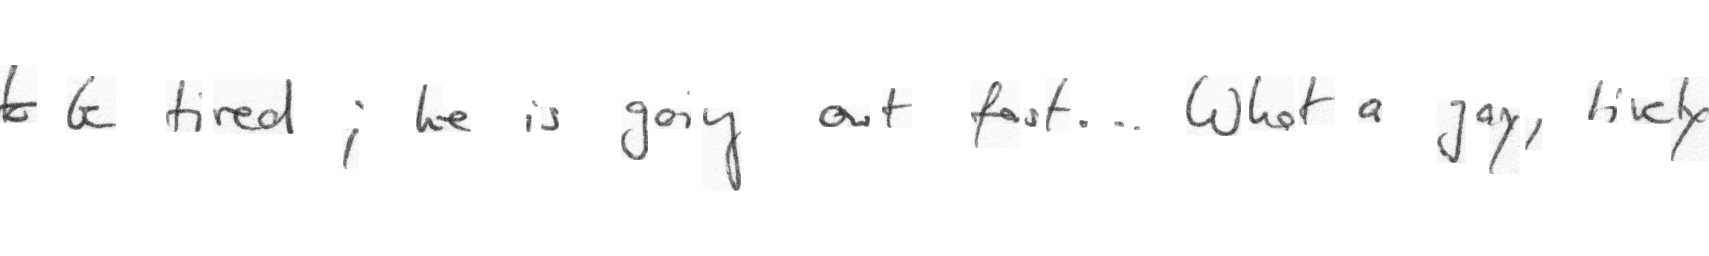 to be tired ; he is going out fast... What a gay, lively